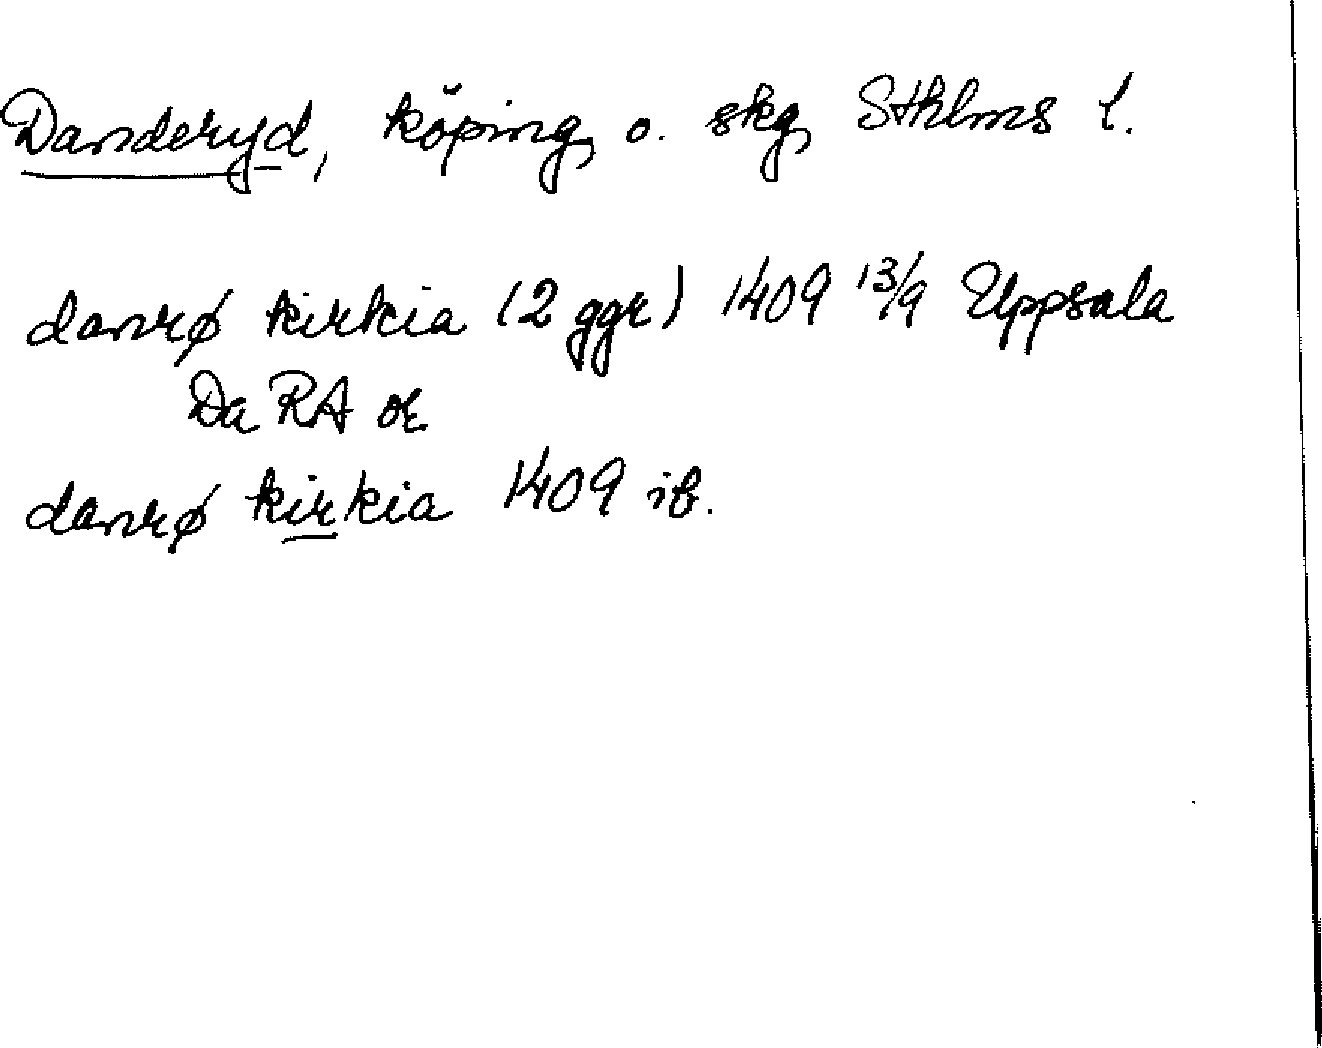 Danderyd, köping o. skg, Sthlms l.
danrø kirkia (2 ggr) 1409 13/9 Uppsala
Da RA or
danrø kirkia 1409 ib.